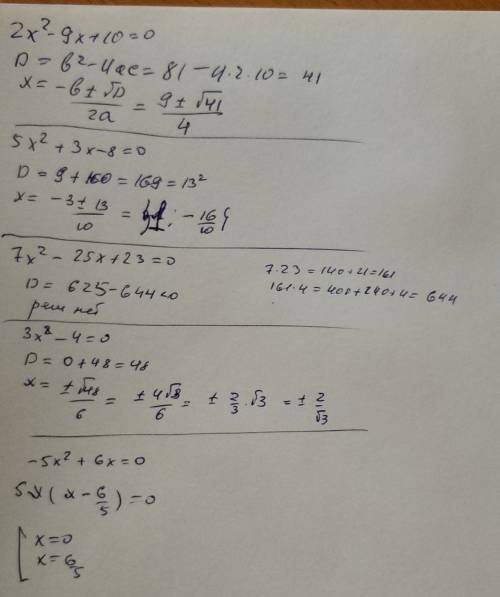 2x² - 9x + 10 = 0
D = b² - 4ac = 81 - 4·2·10 = 41
x = (-b ± √D)/2a = (9 ± √41)/4
5x² + 3x - 8 = 0
D = 9 + 160 = 169 = 13²
x = (-3 ± 13)/10 = {1; -16/10}
7x² - 25x + 23 = 0
D = 625 - 644 < 0
реш нет
7·23 = 140 + 21 = 161
161·4 = 400 + 240 + 4 = 644
3x² - 4 = 0
D = 0 + 48 = 48
x = ±√48/6 = ±4√3/6 = ± 2/3 · √3 = ± 2/√3
-5x² + 6x = 0
5x(x - 6/5) = 0
[ x = 0
x = 6/5